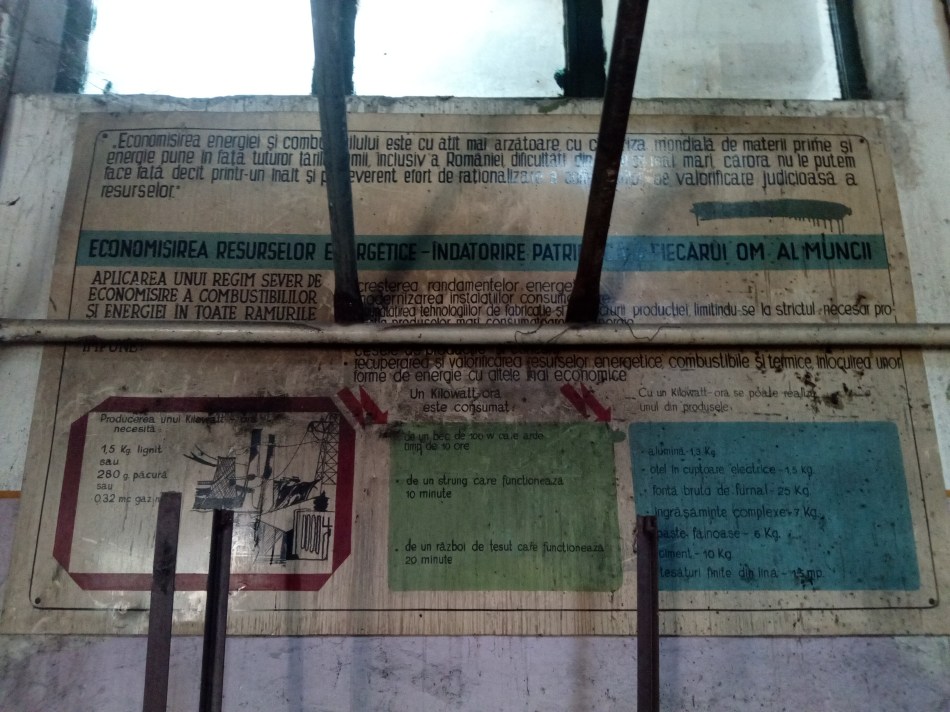 „Economisirea energiei și combustilului este cu atît mai arzătoare, cu criza mondială de materii prime și
energie pune în fața tuturor țărilor lumii, inclusiv a României, dificultăți din mari, cărora nu le putem
face față decît printr-un înalt și perseverent efort de raționalizare a de valorificare judicioasă a
resurselor.”
ECONOMISIREA RESURSELOR ENERGETICE - ÎNDATORIRE PATRI FIECĂRUI OM AL MUNCII
APLICAREA UNUI REGIM SEVER DE
ECONOMISIRE A COMBUSTIBILILOR
ȘI ENERGIEI ÎN TOATE RAMURILE
IMPUNE:
creșterea randamentelor energe
modernizarea instalațiilor consum
tehnologiilor de fabricație și producției, limitîndu-se la strictul necesar pro-
produselor mari consumatoare energie
• recuperarea și valorificarea resurselor energetice, combustibile și termice, înlocuirea unor
forme de energie cu altele mai economice
Producerea unui Kilowatt - oră
necesită:
1,5 Kg lignit
sau
280 g. păcură
sau
0,32 mc gaz
Un Kilowatt-oră
este consumat:
de un bec de 100 W care arde
timp de 10 ore
• de un strung care funcționează
10 minute
• de un război de țesut care funcționează
20 minute
Cu un Kilowatt-oră se poate realiza
unul din produsele:
- alumină - 1,3 Kg.
- oțel în cuptoare electrice - 1,5 kg.
- fontă brută de furnal - 25 Kg.
- îngrășăminte complexe - 7 Kg.
paste făinoase - 6 Kg.
ciment - 10 Kg.
țesături finite din lînă - 1,5 mp.